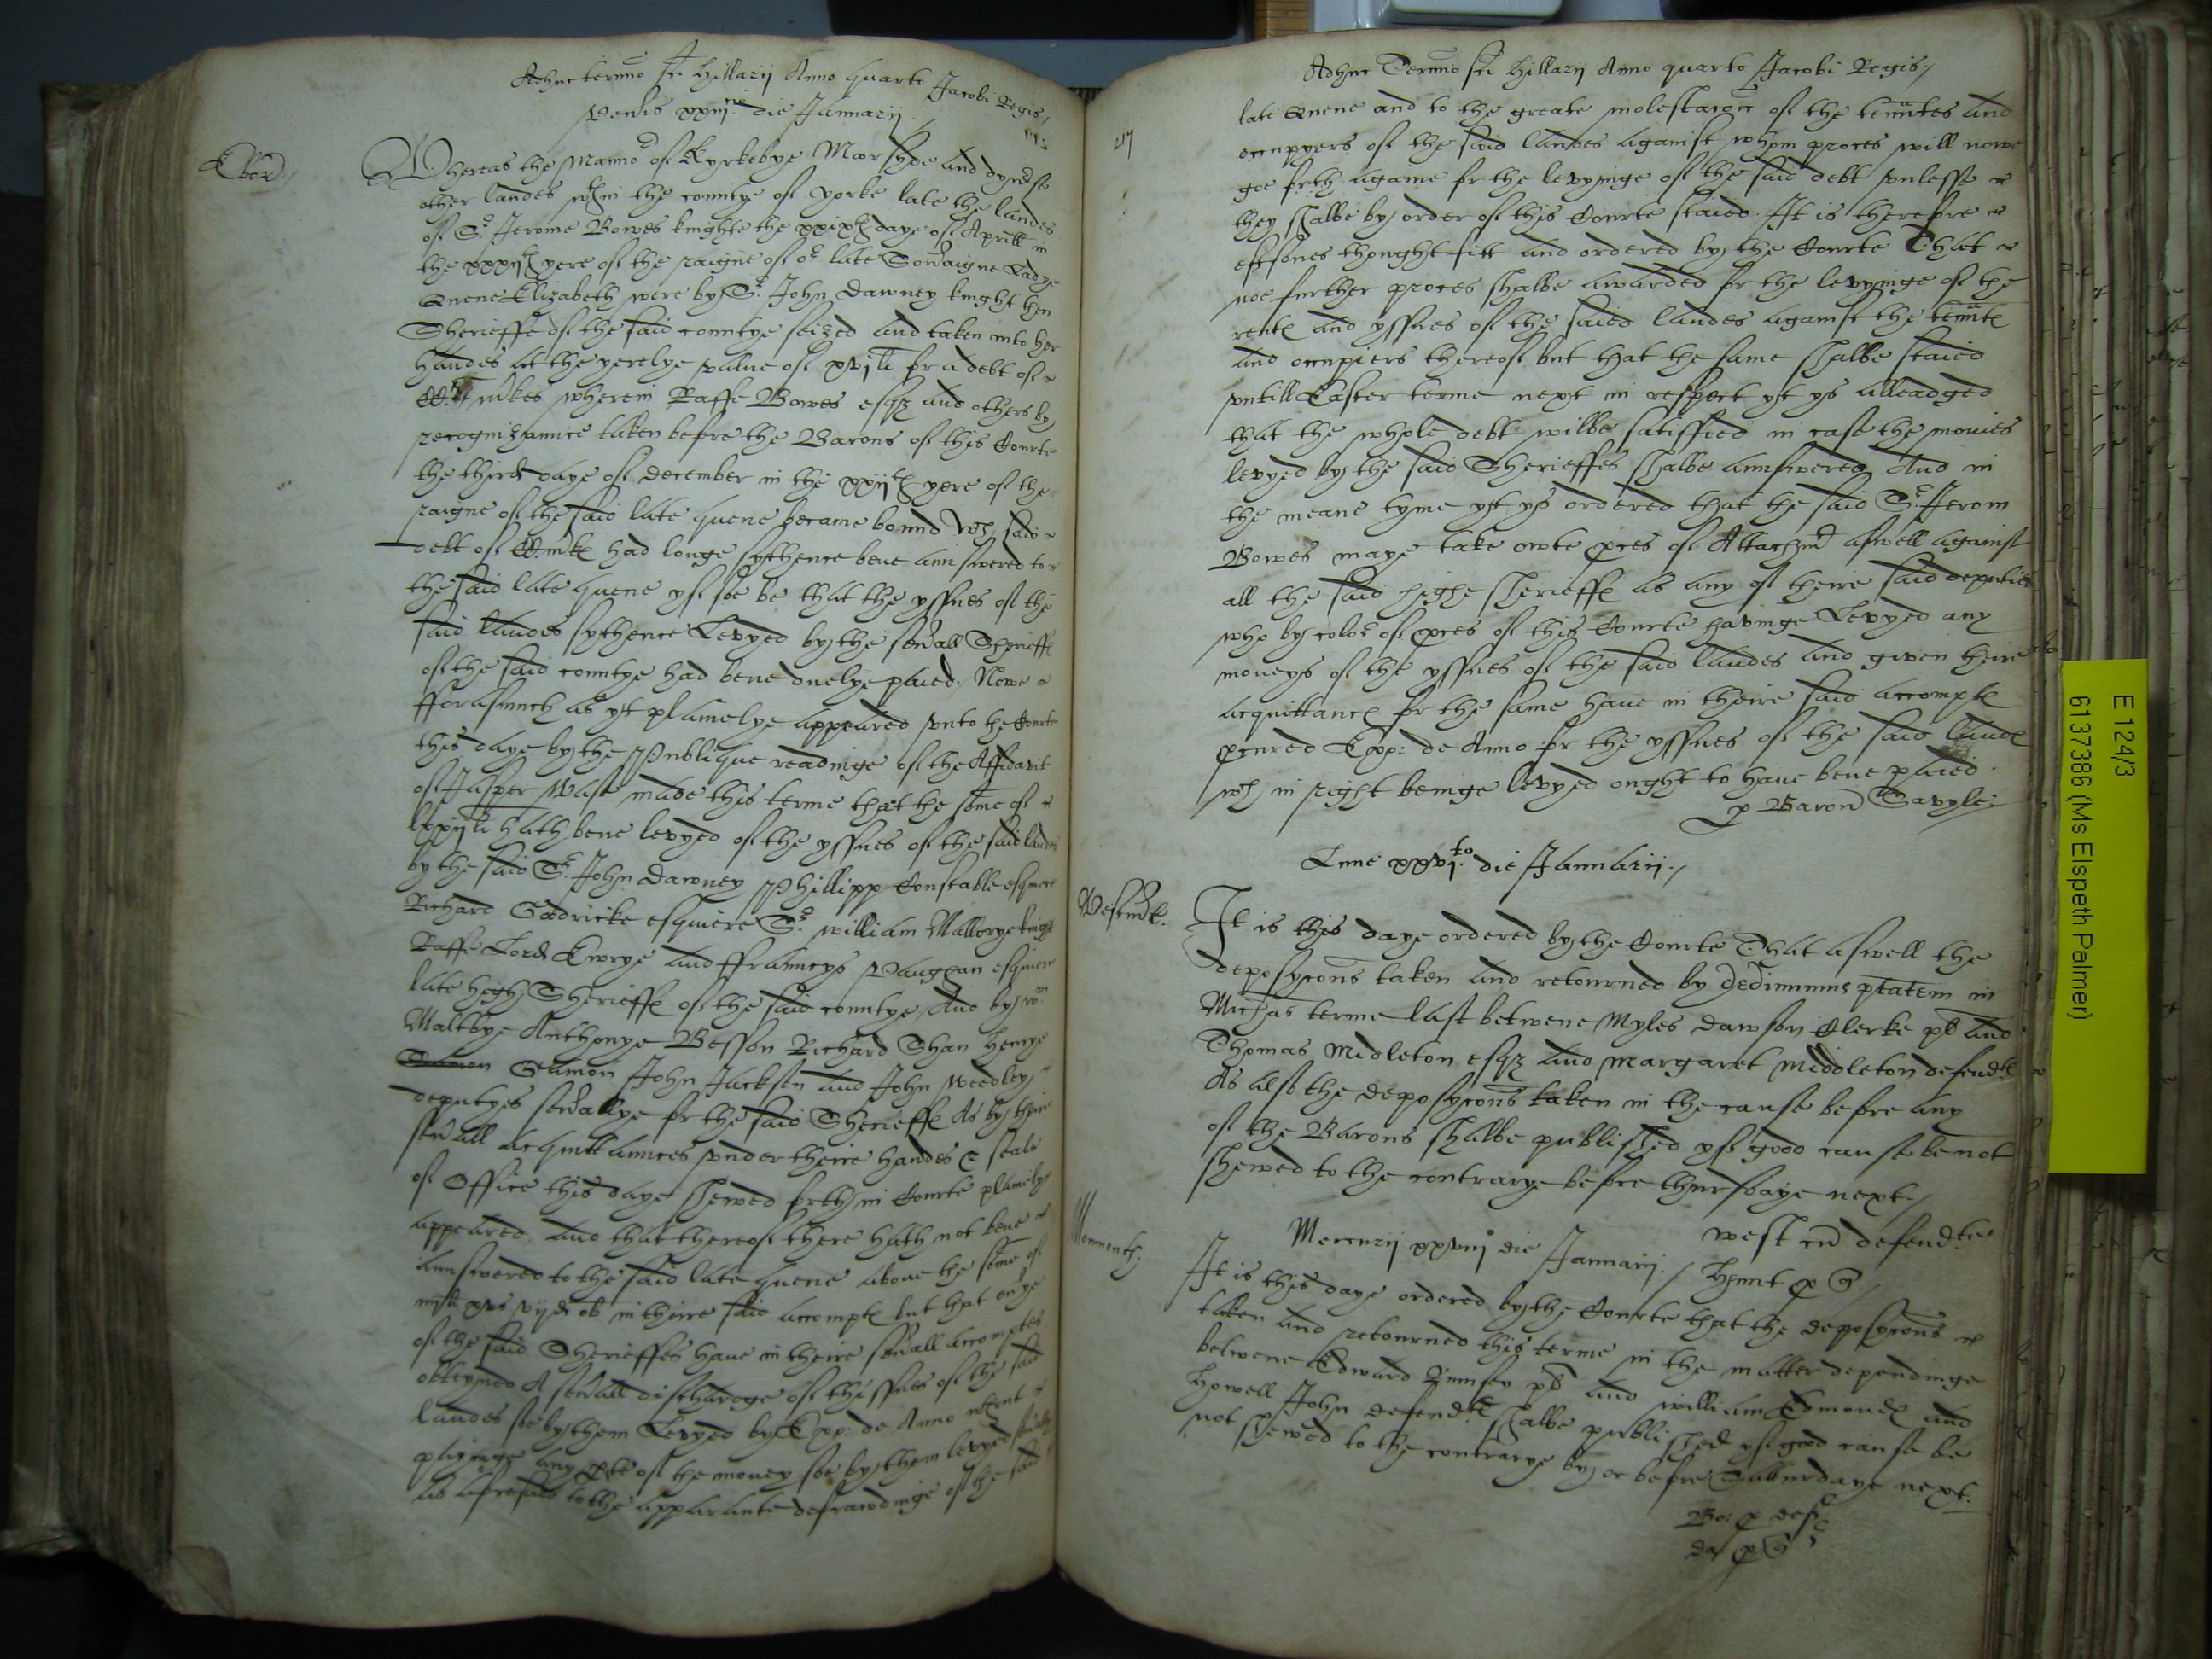 Adhuc termino Sci Hillarij Anno quarto Jacobi Regis/
Veneris xxiijcio die Januarij
Ebor/
Whereas the Manno:r of Kyrkebye Moorsyde and dyverse
other landes wthin the countye of yorke late the landes
of Sr Jerome Bowes knighte the xxixth daye of Aprill in
the xxxijth yere of the raigne of or late Soveraigne Ladye
Quene Elizabeth were by Sr John Dawney knight then
Sherieffe of the said countye seized and taken into her
handes at the yerelye value of xvjli for a debt of
mkes wherein Raffe Bowes esqz and others by
recognizaunce taken before the Barons of this Courte
the third daye of December in the xxijth yere of the
raigne of the said late quene became bound wch said
debt of mkes had longe sythence bene aunswered to
the said late quene yf soe be that the yssues of the
said landes sythence Levyed by the severall Sherieffes
of the said countye had bene duelye paied. Nowe
fforasmuch as yt plainelye appeared unto the Courte
this daye by the Publique readinge of the Affidavit
of Jasper made this terme that the some of
lxxijli hath bene levyed of the yssues of the said landes
by the said Sr John Dawney Phillipp Constable esquiere
Richard Goodricke esquiere Sr William Malloryeknight
Raffe Lord Ewrye and ffrauncys Vaughan esquiere
late hegh Sherieffes of the said countye And by Wm
Maltbye Anthonye Besson Richard Shan Henrye
Samon Samon John Jackson and John Weedley
deputyes severallye for the said Sherieffes As by their
severall acquittaunces under theire handes & seale
of Office this daye shewed forth in Courte plainelye
appeared And that thereof there hath not bene
aunswered to the said late quene above the some of
iiijli xvs vijd ob in theire said accomptes but that everye
of the said Sherieffes have in theire severall accomptes
obteyned A severall discharge of the issues of the said
landes soe by them Levyed by Exp: de Anno wthout
payinge any parte of the money soe by them levyed
as aforesaid to the apparante defrawdinge of the said
Adhuc Termino Sci Hillarij Anno quarto Jacobi Regis/
late Quene and to the greate molestacon of the tenntes and
occupyers of the said landes against whom proces will nowe
goe forth againe for the levyinge of the said debt unlesse
they shalbe by order of this Courte staied. It is therefore
eftsones thought fitt and ordered by the Courte That
noe further proces shalbe awarded for the levyinge of the
rentes and yssues of the saied landes against the tenntes
and occupiers thereof but that the same shalbe staied
untill Easter terme next in respect yt ys alleadged
that the whole debt wilbe satisffied in case the monies
levyed by the said Sherieffes shalbe aunswered And in
the meane tyme yt ys ordered that the said Sr Jerom
Bowes maye take owte pces of Attachmt aswell against
all the said highe sherieffes as any of theire said deputies
who by color of pces of this Courte havinge Levyed any
moneys of the yssues of the said landes and given theire
acquittances for the same have in theire said accomptes
pcured Exp: de Anno for the yssues of the said landes
wch in right beinge levyed ought to have bene paied.
p Baron Savyle
Lune xxvjto die Januarij./
Westmrl.
It is this daye ordered by the Courte That aswell the
deposycons taken and retourned by dedimus ptatem in
Michas terme last betwene Myles Dawson Clerke plt and
Thomas Midleton esqz and Margaret Middleton defendtes
As also the deposycons taken in the cause before any
of the Barons shalbe published yf good cause be not
shewed to the contrarye before thursdaye next/
West defendte
Mercurij xxviij die Januarij./ Hunt p q./
Monmouth.
It is this daye ordered by the Courte that the deposycons
taken and retourned this terme in the matter dependinge
betwene Edward Rumsey plt and william Edmondes and
Howell John defendtes shalbe published yf good cause be
not shewed to the contrarye by or before Satturdaye next.
Bo: p def
da p q
E 124/3
6137386 (Ms Elspeth Palmer)